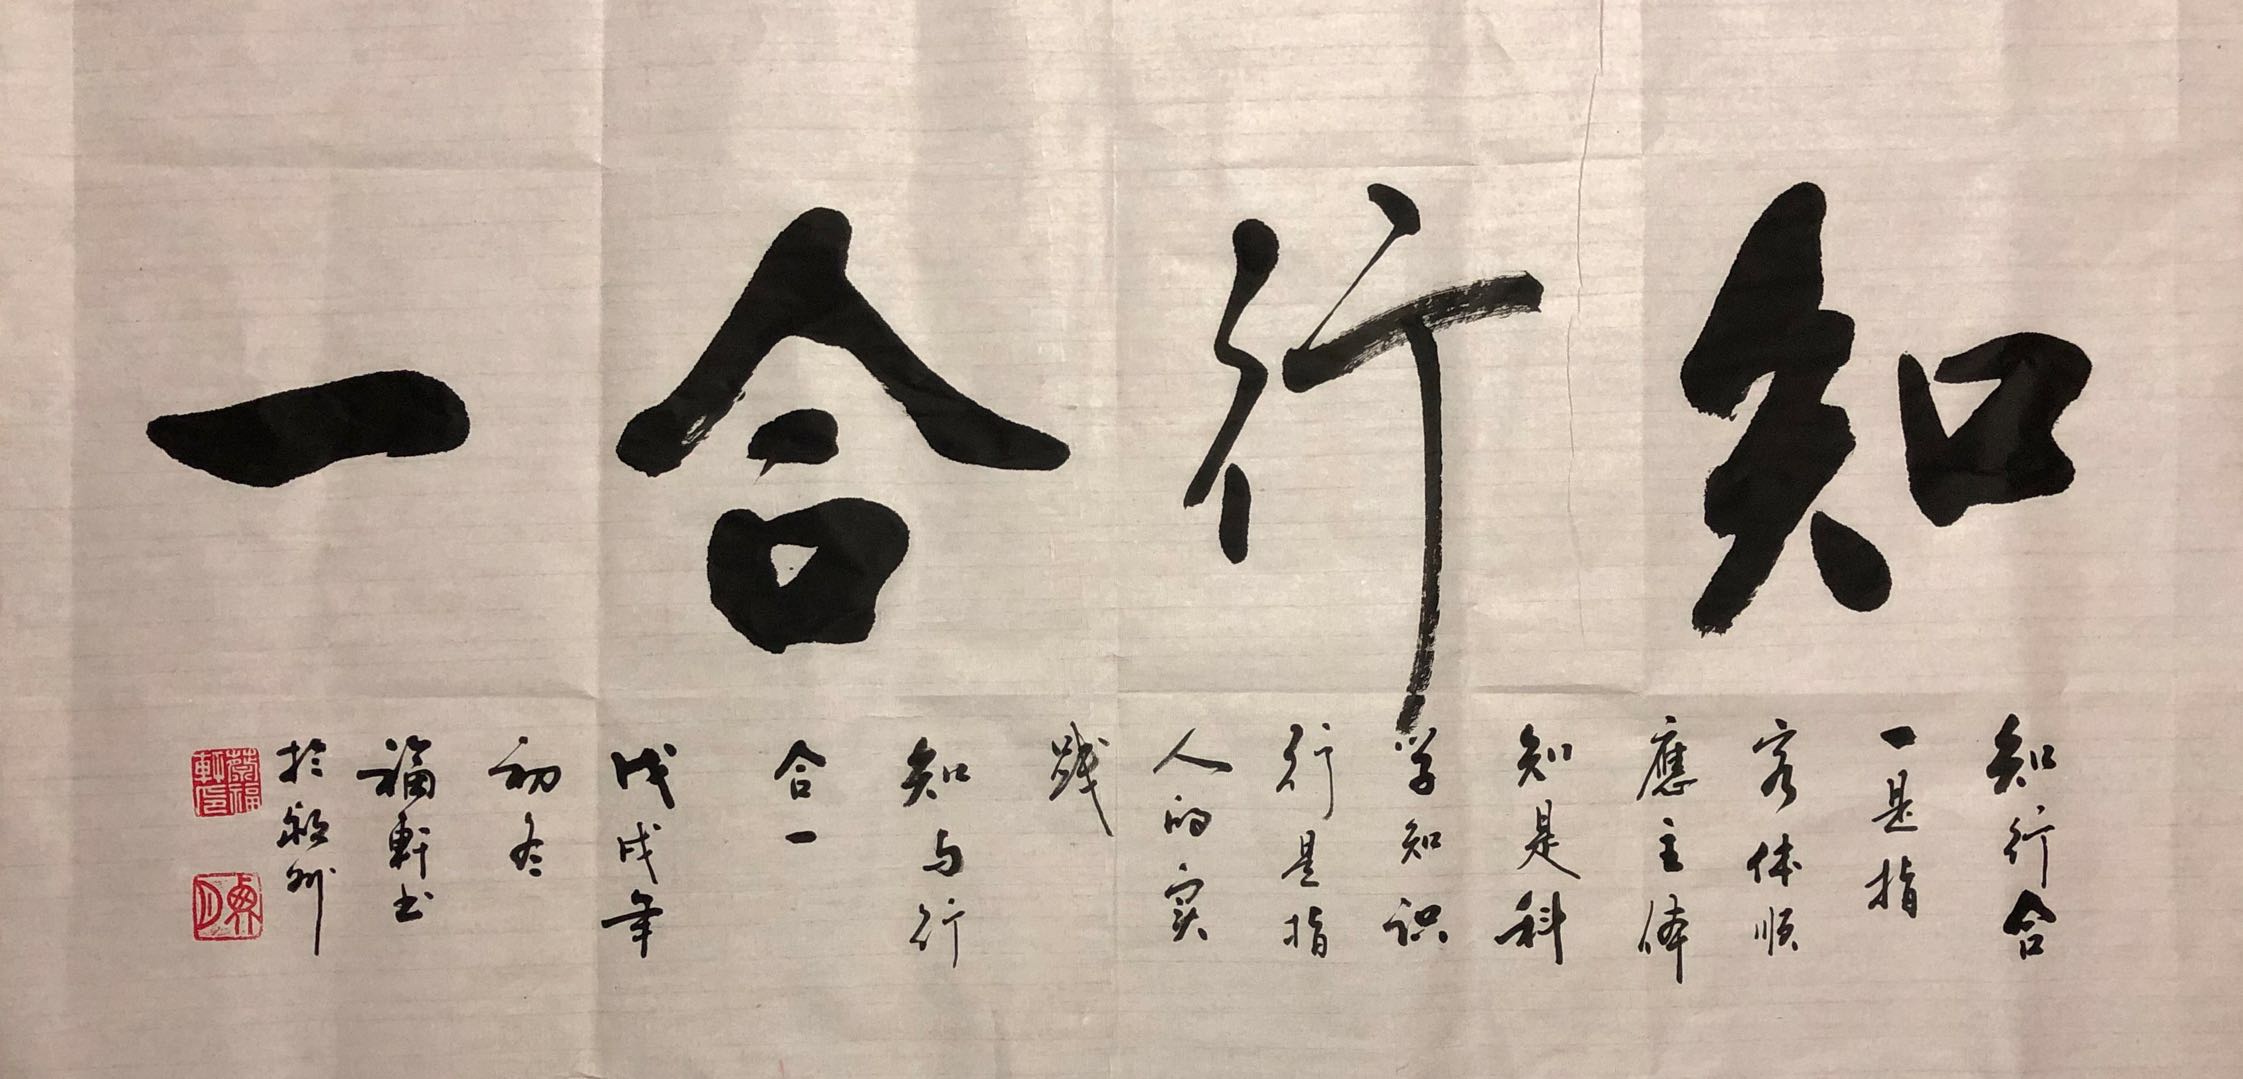 知行合一
知行合
一是指
客体顺
應主体
知是科
学知识
行是指
人的实
践
知与行
合一
戊戌年
初冬
福軒书
於